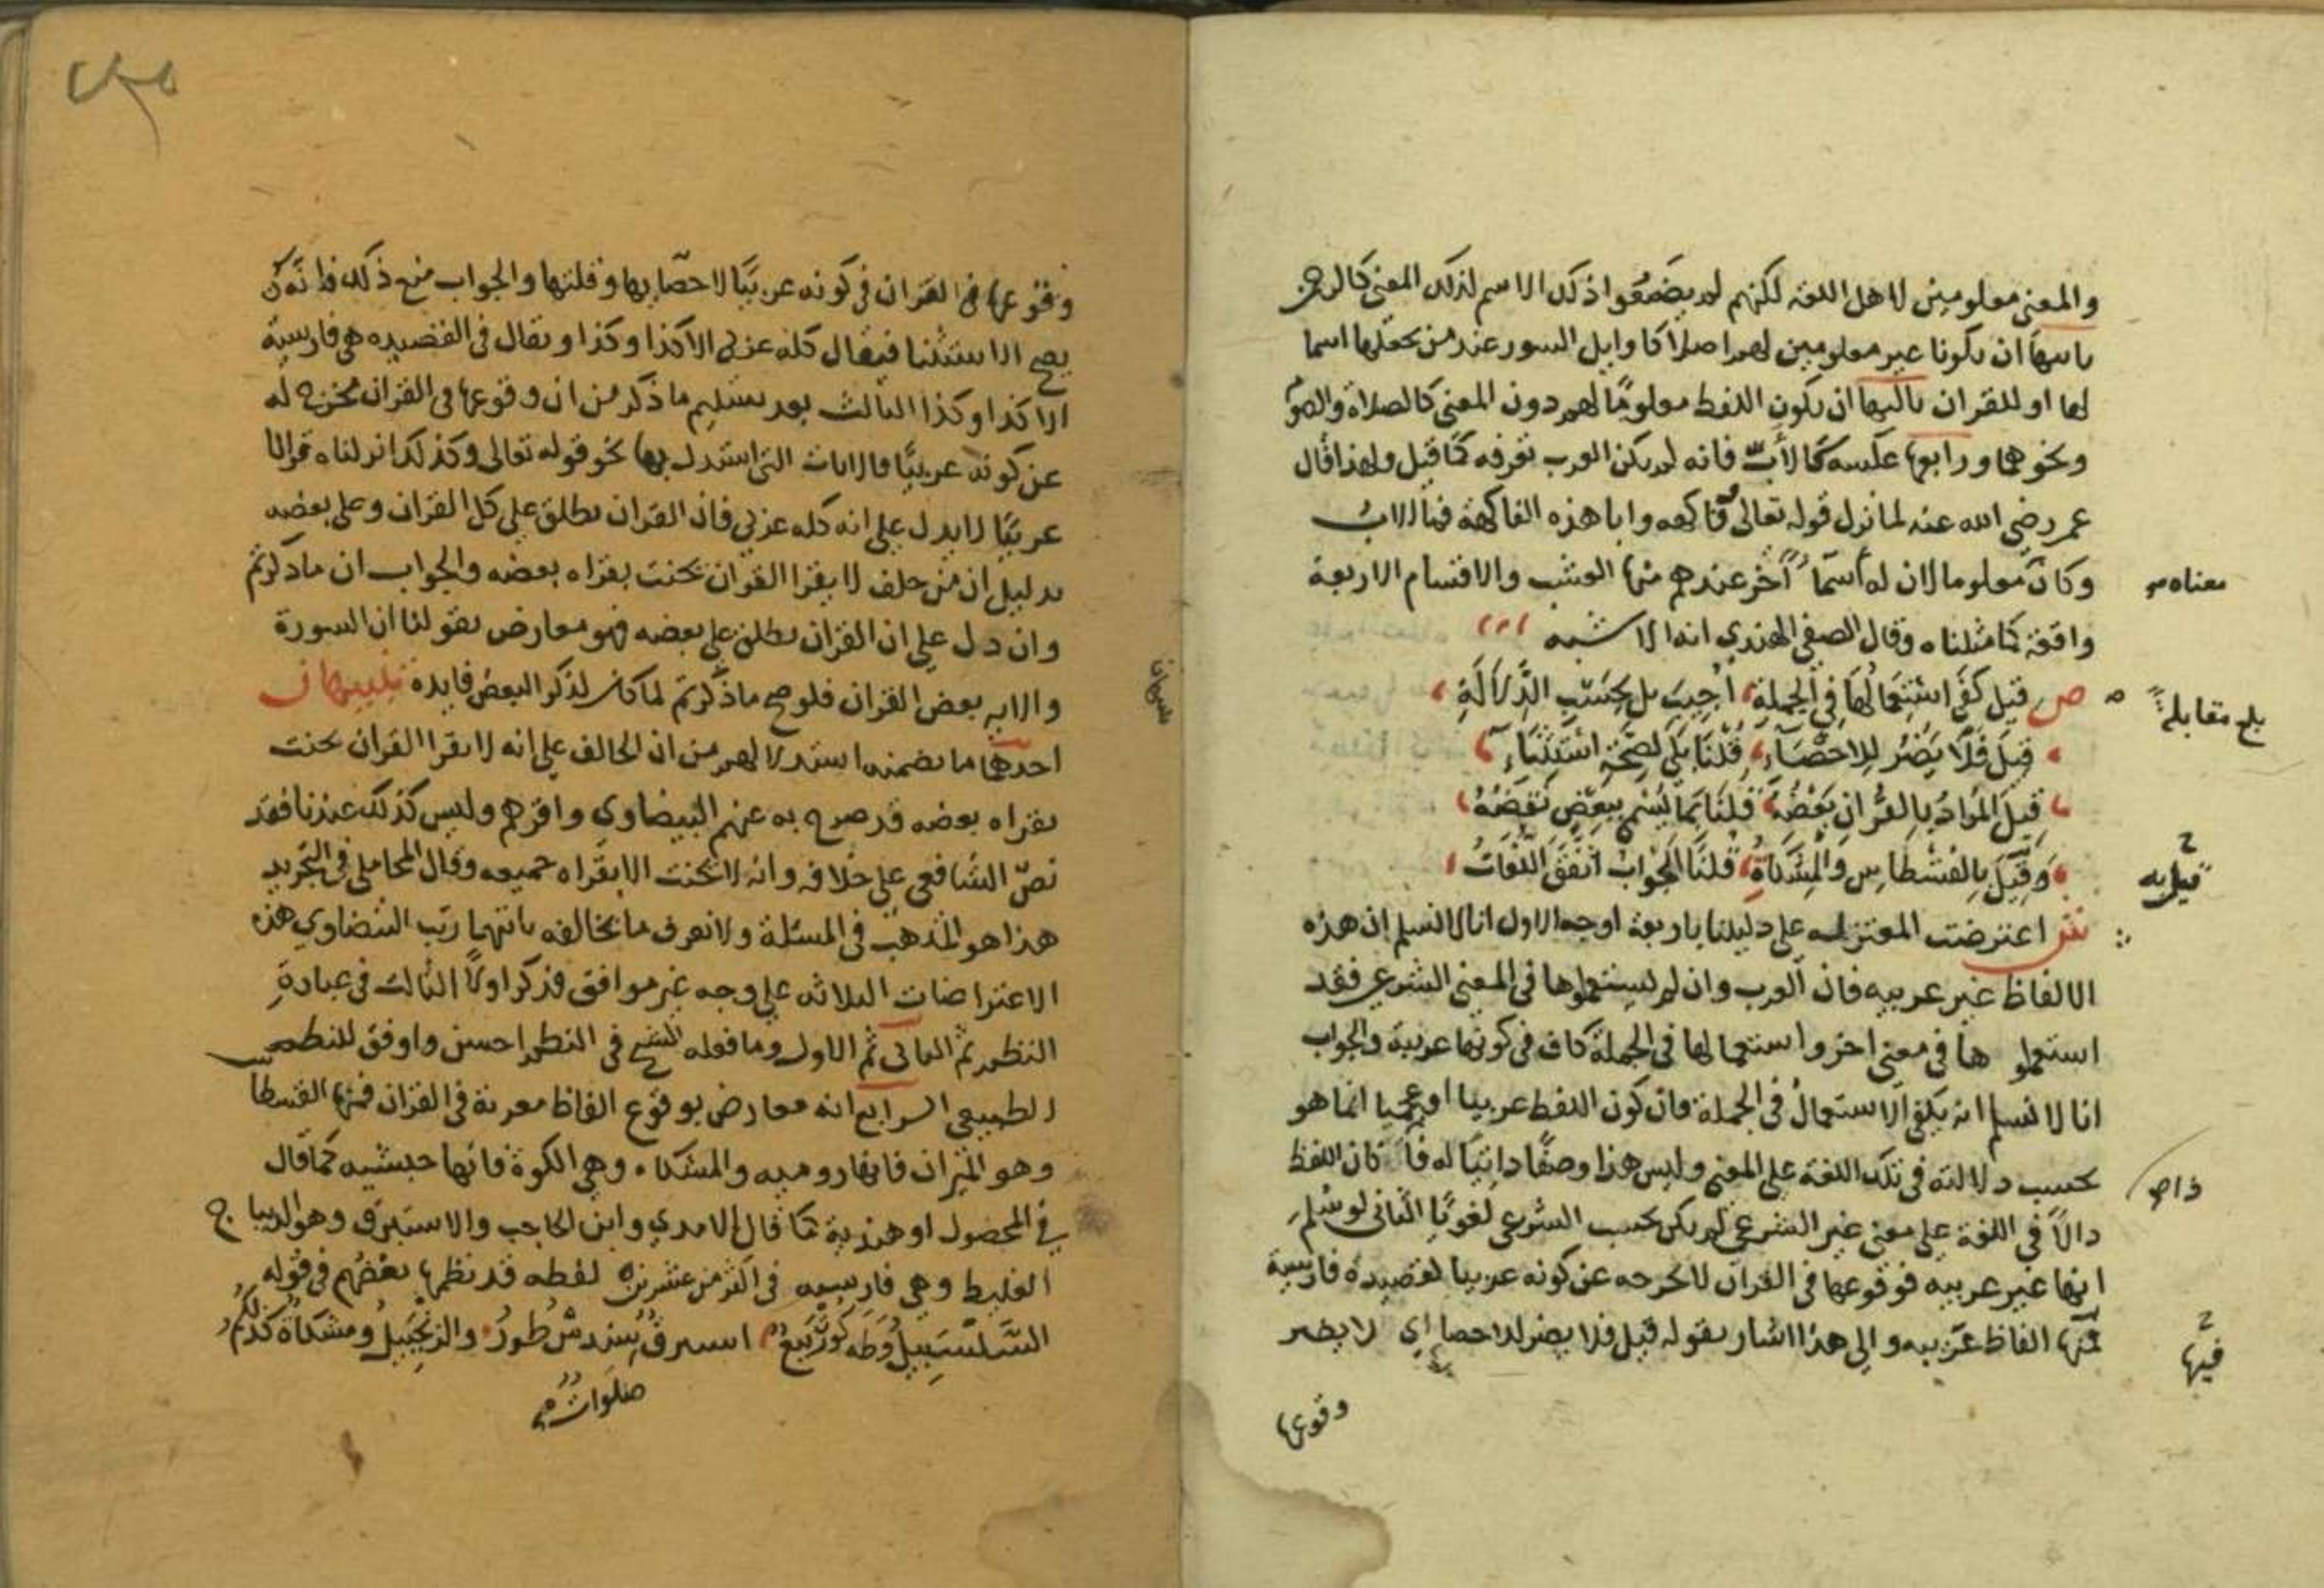 والمعنى معلومين لاهل اللغه لكنهم لم يضعوا ذلك الاسم لذلك المعنى كالرحمن
ثانيها ان يكونا غير معلومين لهم اصلا كاوايل السور عند من يجعلها اسما
لها او للقران ثالثها ان يكون اللفظ معلومًا لهم دون المعنى كالصلاة والصوم
ونحوهما ورابعها عكسه كالأبّ فانه لم يكن العرب تعرفه كما قيل ولهذا قال
عمر رضي الله عنه لما نزل قوله تعالى وفاكهه وابا هذه الفاكهة فما الابُ
وكان معلوما لان له أسمآءُ أُخر عندهم منها العشب والاقسام الاربعة
معناه
واقعة كما مثلناه وقال الصفي الهندي انه الاشبه
ص قيل كفَى استِعمالُهَا في الجملةِ أُجيبَ بل بحَسَبِ الدِّلالَةِ
بلغ مقابلة
قيلَ فَلاَ يَضُرُّ للاحصَآءِ قُلْنَا بَلَى لِصِحَّةِ استثنَاءِ
قيلَ المُرادُ بالقُرآنِ بَعْضُهُ قُلنَا بِمَا يُسْمَى ببَعْضٍ نَقْضُهُ
وَقيْلَ بالقِسْطَاسِ وَالْمِشكَاةِ قلنَا الجَوابُ اتفَقَ اللُّغَاتُ
قيل به
ش اعترضت المعتزله على دليلنا باربعة اوجه الاول انا لا نسلم ان هذه
الالفاظ غير عربيه فان العرب وان لم يستعملوها في المعنى الشرعي فقد
استعملوها في معنى اخر واستعمالها في الجملة كاف في كونها عربية والجواب
انا لا نسلم انه يكفي الاستعمال في الجملة فان كون اللفظ عربيا او عجميا انما هو
بحسب دلالته في تلك اللغة على المعنى وليس هذا وصفًا ذاتيًا له فاذا كان اللفظ
ذا صح
دالاً في اللغة على معنى غير الشرعي لم يكن بحسب الشرعي لغويًا الثاني لو سُلم
انها غير عربيه فوقوعها في القران لا يخرجه عن كونه عربيا كقصيدة فارسية
فيها
فيها الفاظ عربيه والى هذا اشار بقوله قيل فلا يضر للاحصا اي لا يضر
وقوعها
وقوعها في القران في كونه عربيًا لاحصآيها وقلتها والجواب منع ذلك فانه كان
يصح الاستثنا فيقال كله عربي الا كذا وكذا ويقال في القصيده هي فارسية
الا كذا وكذا الثالث بعد تسليم ما ذكر من ان وقوعها في القران مخرج له
عن كونه عربيًا فالايات التي استدل بها نحو قوله تعالى وكذلك انزلناه قرانا
عربيًا لا يدل على انه كله عربي فان القران يطلق على كل القران وعلى بعضه
بدليل ان من حلف لا يقرا القران يحنث بقراه بعضه والجواب ان ما ذكرتم
وان دل على ان القران يطلق على بعضه فهو معارض بقولنا ان السورة
والايه بعض القران فلو صح ما ذكرتم لما كان لذكر البعض فايدة تنبيهان
احدهما ما تضمنه استدلالهم من ان الحالف على انه لا يقرا القران يحنث
بقراه بعضه قد صرح به عنهم البيضاوي واقرهم وليس كذلك عندنا فقد
نصّ الشافعي على خلافه وانه لا يحنث الا بقراه جميعه وقال المحاملي في التجريد
هذا هو المذهب في المسئلة ولا نعرف ما يخالفه ثانيهما رتب البيضاوي هذه
الاعتراضات الثلاثه على وجه غير موافق فذكر اولاً الثالث في عبادةِ
النظم ثم الثاني ثم الاول وما فعله الشيخ في النظم احسن واوفق للنظم
الطبيعي الرابع انه معارض بوقوع الفاظ معربة في القران فمنها القسطاس
وهو الميزان فانها روميه والمشكاه وهي الكوة فانها حبشيه كما قال
في المحصول او هندية كما قال الامدي وابن الحاجب والاستبرق وهو الديباج
الغليط وهي فارسيه في اكثر من عشرين لفظه قد نظمها بعضُهم في قوله
السَّلسَبِيلُ وَطه كُوّرَت بيَعٌ استبرقٌ سندسٌ طُورٌ والزنجبيلُ ومشكاةٌ
صلوات